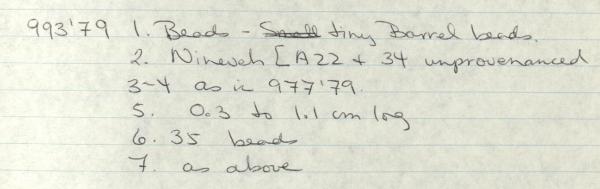 993'79 1. Beads - Small tiny Barrel beads.
2. Nineveh [A22 + 34 unprovenanced
3-4 as in 977'79.
5. 0.3 to 1.1 cm long
6. 35 beads
7. as above